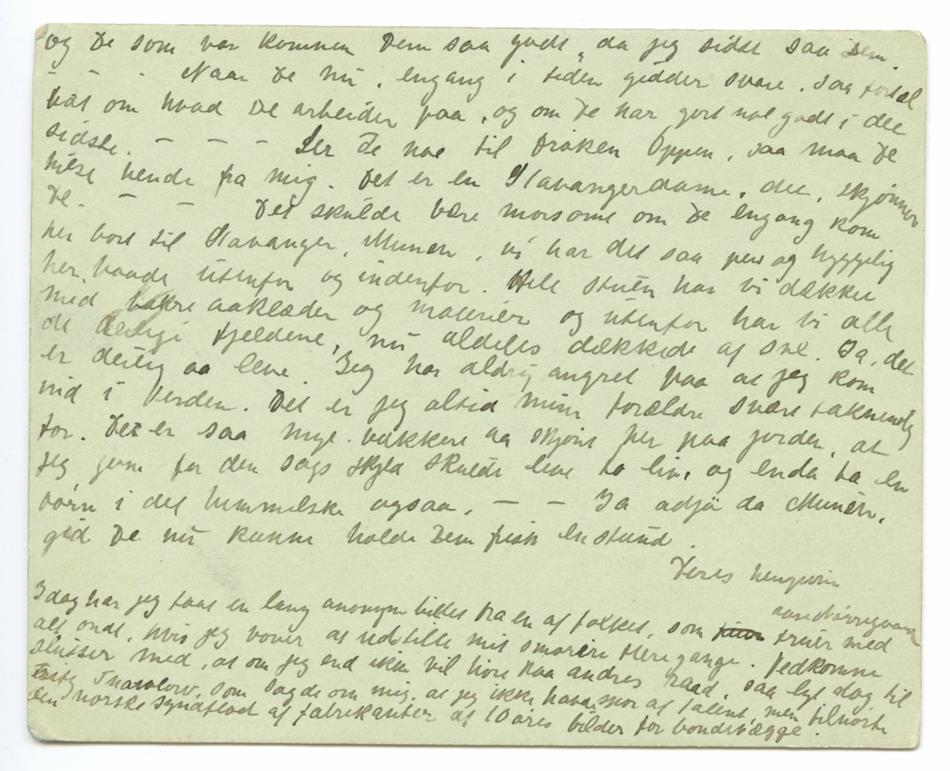 og De som var kommen Dem saa godt, da jeg sidst saa Dem.
- - . Naar De nu, engang i tiden gidder svare, saa fortæl
lidt om hvad De arbeider paa, og om De har gjort noe godt i det
sidste. - - - Ser De noe til Frøken Oppen, saa maa De
hilse hende fra mig. Det er en Stavangerdame, det, skjønner
De. - - Det skulde være morsomt om De engang kom
her bort til Stavanger, Munch, vi har det saa pent og hyggelig
her baade utenfor og indenfor. Hele stuen har vi dækket
med vakre aaklæder og malerier og utenfor har vi alle
de deilige fjeldene, nu aldeles dækkede af sne. Ja, det
er deilig aa leve. Jeg har aldrig angret paa at jeg kom
ind i Verden. Det er jeg altid mine forældre svært taknemlig
for. Det er saa mye vakkert aa skjønt her paa jorden, at
jeg gjerne for den sags skyld skulde leve to liv, og enda ta en
børn i det himmelske ogsaa. - - Ja adjø da Munch,
gid De nu kunne holde Dem frisk en stund.
Deres hengivne
Aase Nørregaard
Idag har jeg faat en lang anonym billet fra en af folket, som truer med
alt ondt, hvis jeg vover at udstille mit smøreri flere gange. Vedkomne
slutter med, at om jeg end ikke vil høre paa andres raad, saa lyt dog til
Fritz Thaulow, som sagde om mig, at jeg ikke havde spor af talent, men tilhørte
den norske syndflod af fabrikanter af 10 øres bilder for bondevægge.